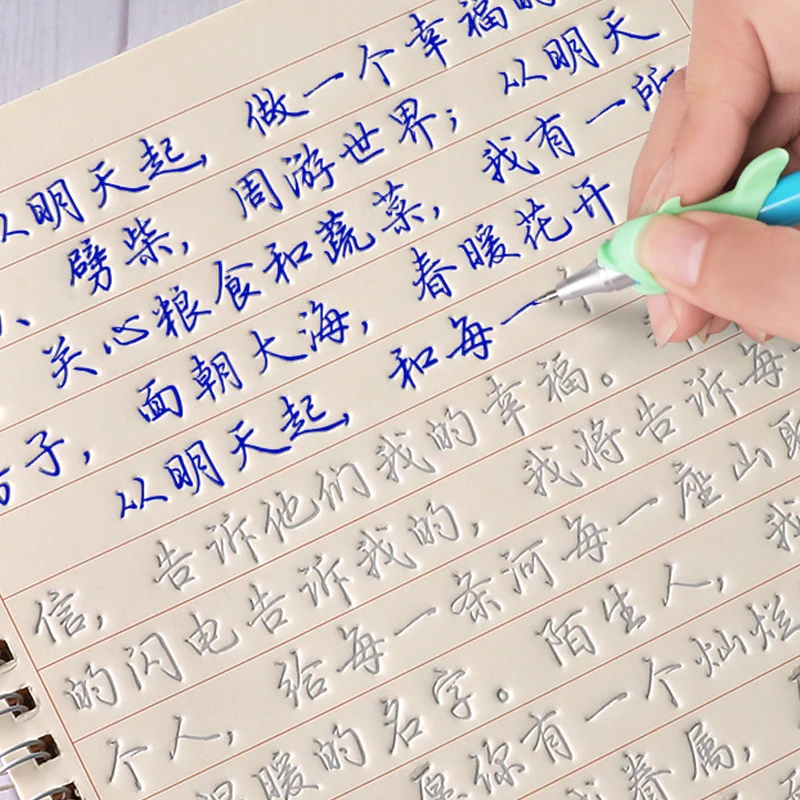 从明天起，做一个幸福的
、劈柴，周游世界；从明天
关心粮食和蔬菜，我有一所
房子，面朝大海，春暖花开
从明天起，和每一
信，告诉他们我的幸福。
的闪电告诉我的，我将告诉每
个人，给每一条河每一座山取
温暖的名字。陌生人，我
愿你有一个灿烂
眷属，